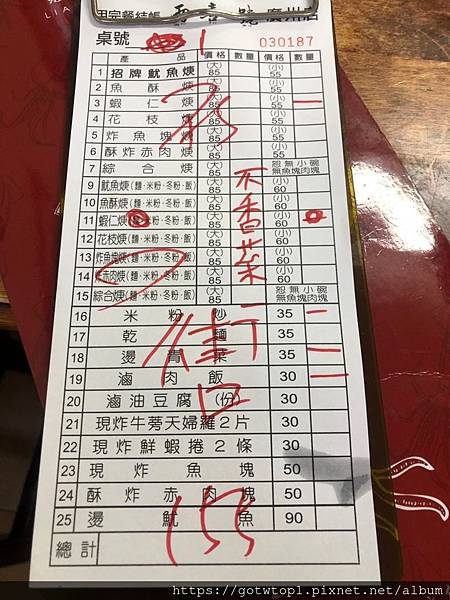 用完餐結帳 兩喜號 廣州店
桌號 1 030187
產品 價格 數量 價格 數量
1 招牌魷魚焿 (大)85 (小)55
2 魚酥焿 (大)85 (小)55
3 蝦仁焿 (大)85 (小)55 一
4 花枝焿 (大)85 (小)55
5 炸魚塊焿 (大)85 (小)55
6 酥炸赤肉焿 (大)85 (小)55
7 綜合焿 (大)85 恕無小碗 無魚塊肉塊
9 魷魚焿(麵‧米粉‧冬粉‧飯) (大)85 (小)60
10 魚酥焿(麵‧米粉‧冬粉‧飯) (大)85 (小)60
11 蝦仁焿(麵‧米粉‧冬粉‧飯) (大)85 (小)60
12 花枝焿(麵‧米粉‧冬粉‧飯) (大)85 (小)60
13 炸魚塊焿(麵‧米粉‧冬粉‧飯) (大)85 (小)60
14 炸赤肉焿(麵‧米粉‧冬粉‧飯) (大)85 (小)60
15 綜合焿(麵‧米粉‧冬粉‧飯) (大)85 恕無小碗 無魚塊肉塊
不香菜
16 米粉炒 35 一
17 乾麵 35
18 燙青菜 35 一
19 滷肉飯 30 一
20 滷油豆腐(份) 30
21 現炸牛蒡天婦羅2片 30
22 現炸鮮蝦捲2條 30
23 現炸魚塊 50
24 酥炸赤肉塊 50
25 燙魷魚 90
總計 155
https://gotwtop1.pixnet.net/album